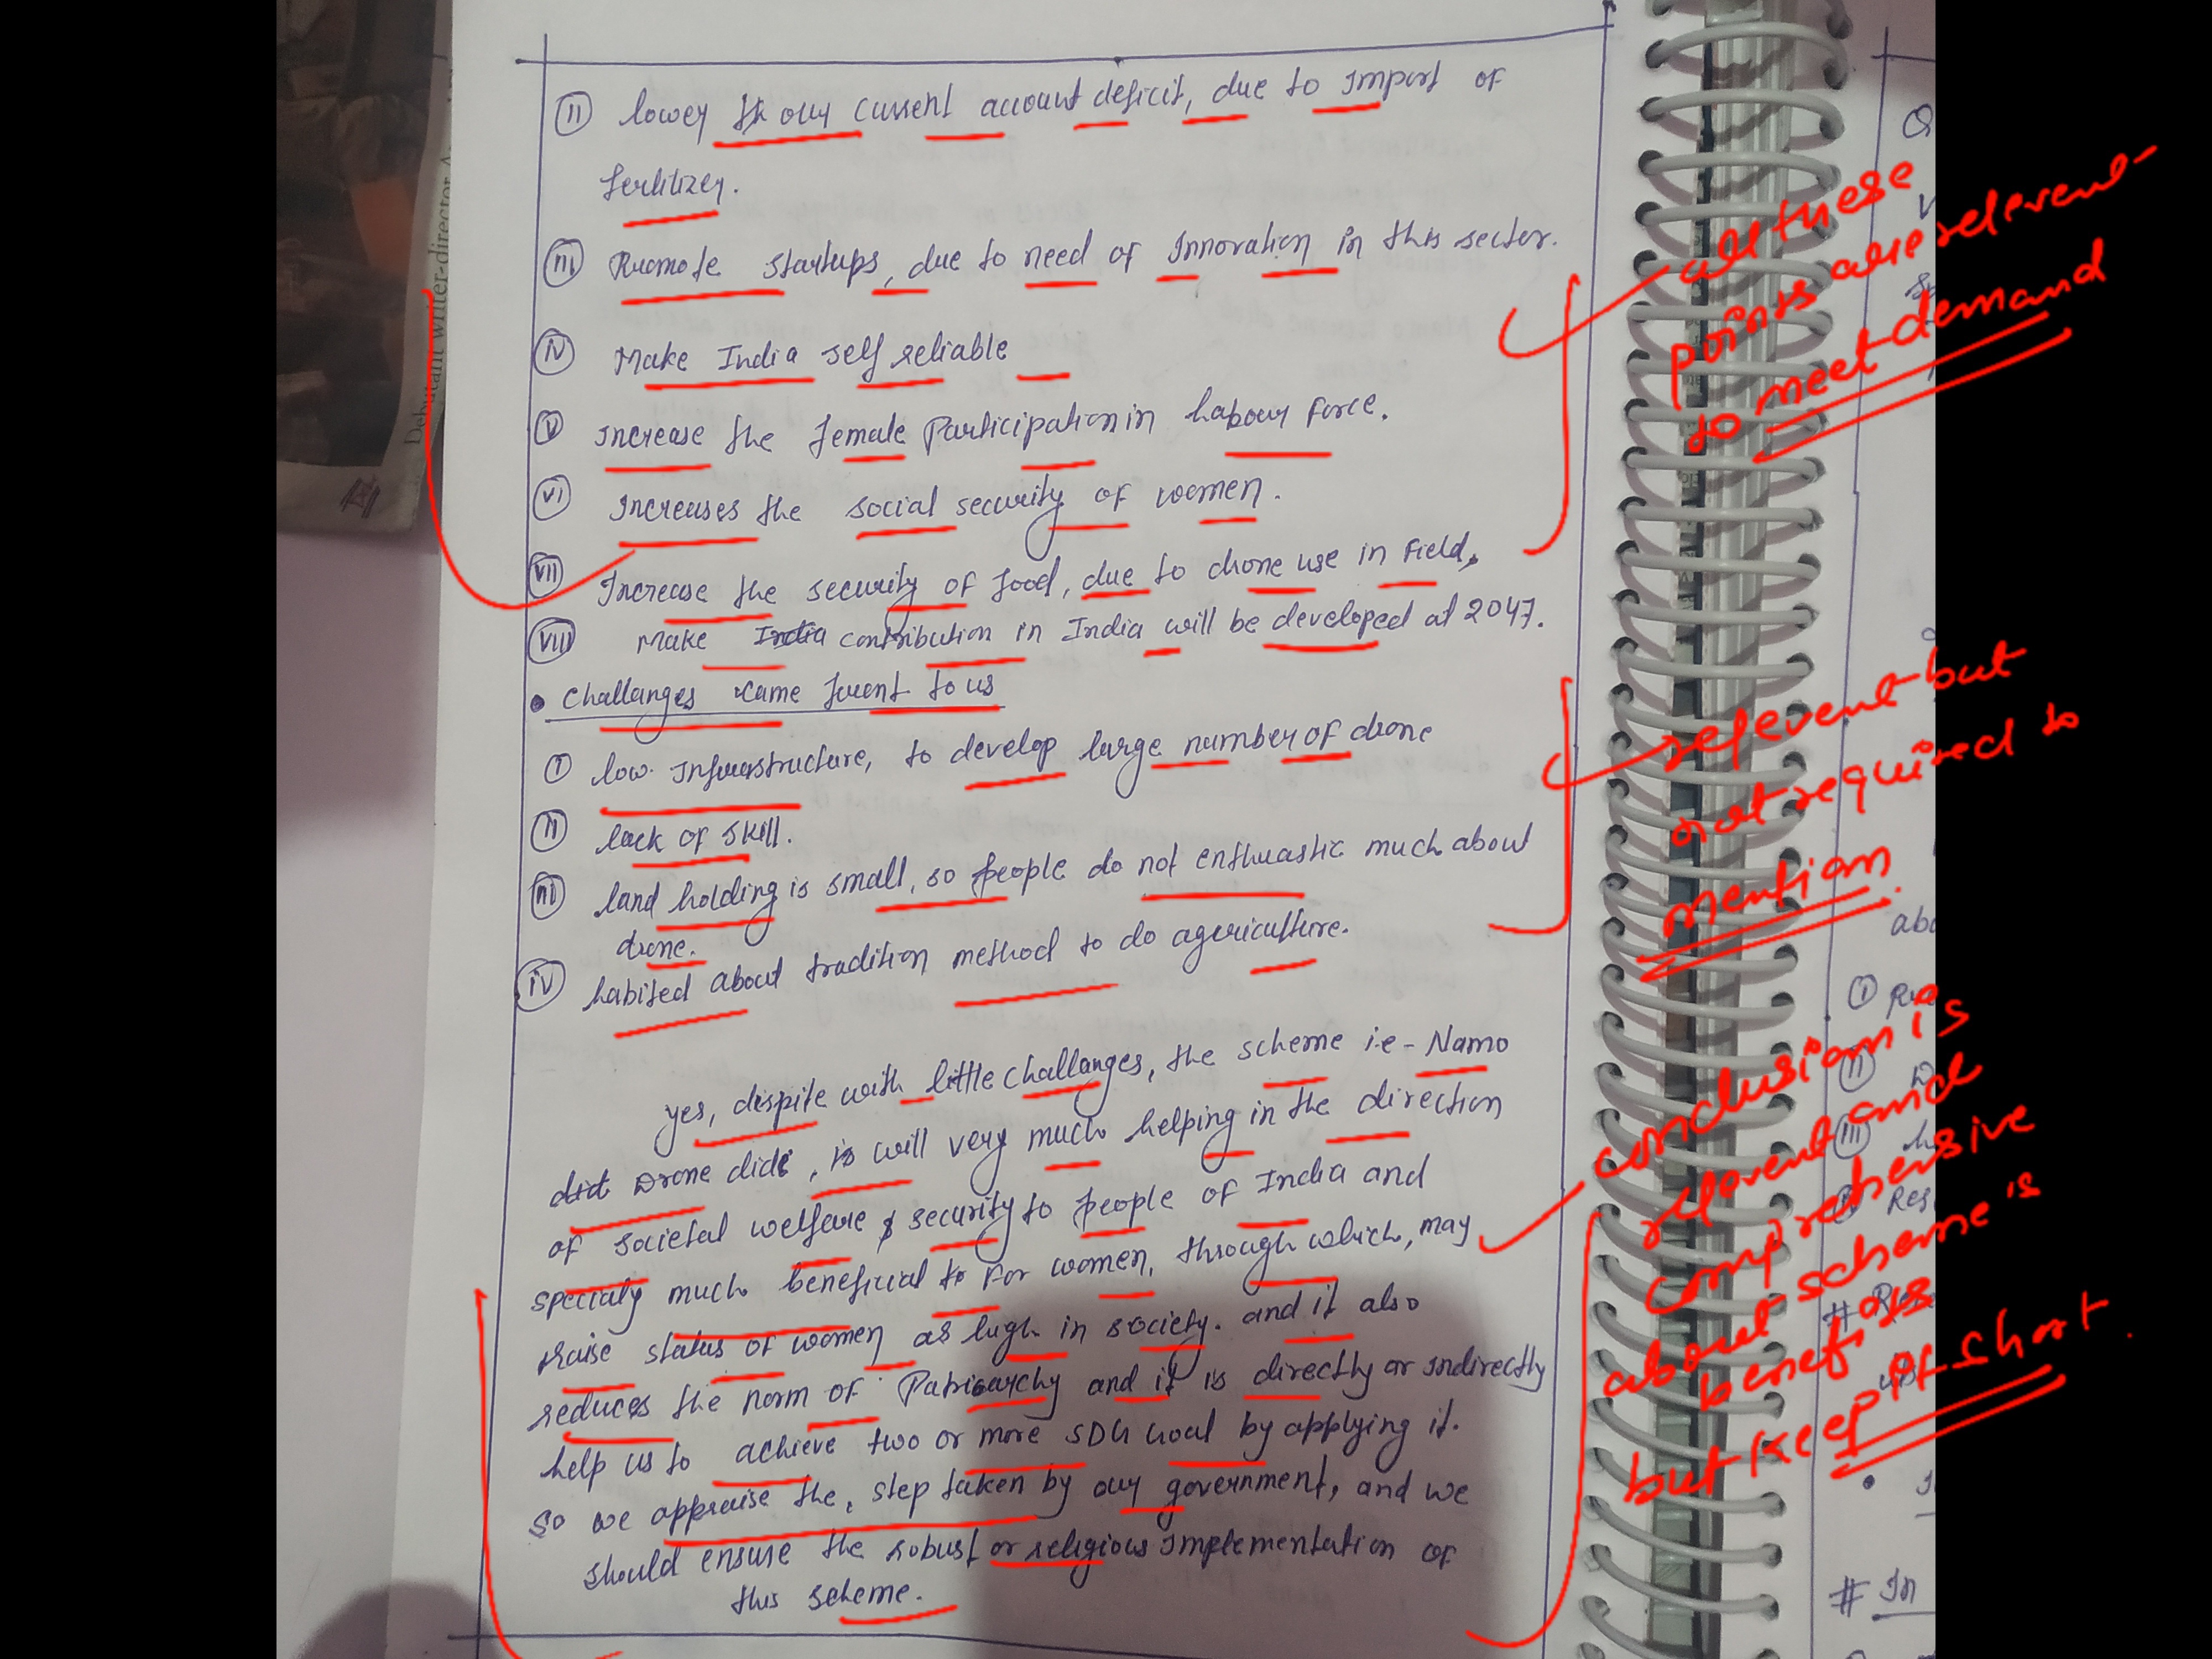 (ii) lower th our current account deficit, due to import of
fertilizer.
(iii) Promote startups, due to need of Innovation in this sector.
(iv) Make India self reliable
(v) increase the female Participation in Labour Force.
(vi) Increases the social security of women.
(vii) Increase the security of food, due to drone use in Field,
(viii) Make India contribution in India will be developed at 2047.
• Challanges came front to us
(i) low Infrastructure, to develop large number of drone
(ii) lack of skill.
(iii) land holding is small, so people do not enthuastic much about
drone.
(iv) habited about tradition method to do agriculture.
yes, dispite with little challanges, the scheme i.e - Namo
Drone didi, is will very much helping in the direction
of societal welfare & security to people of India and
specialy much beneficial to For women, through which, may
raise status of women as high in society. and it also
reduces the norm of Patriarchy and it is directly or indirectly
help us to achieve two or more SDG Goal by applying it.
so we appraise the, step taken by our government, and we
should ensure the robust or religious implementation of
this scheme.
all these
points are relevent
to meet demand
relevent but
not required to
mention
conclusion is
relevent and
comprehensive
about scheme's
benefits is
but keep it short.
Debutant writer-director
abo
Res
# In